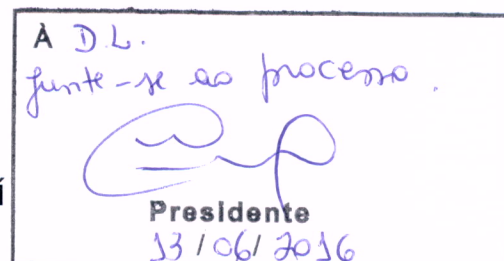 À D.L.
Junte-se ao processo.
Í
Presidente
13/06/2016